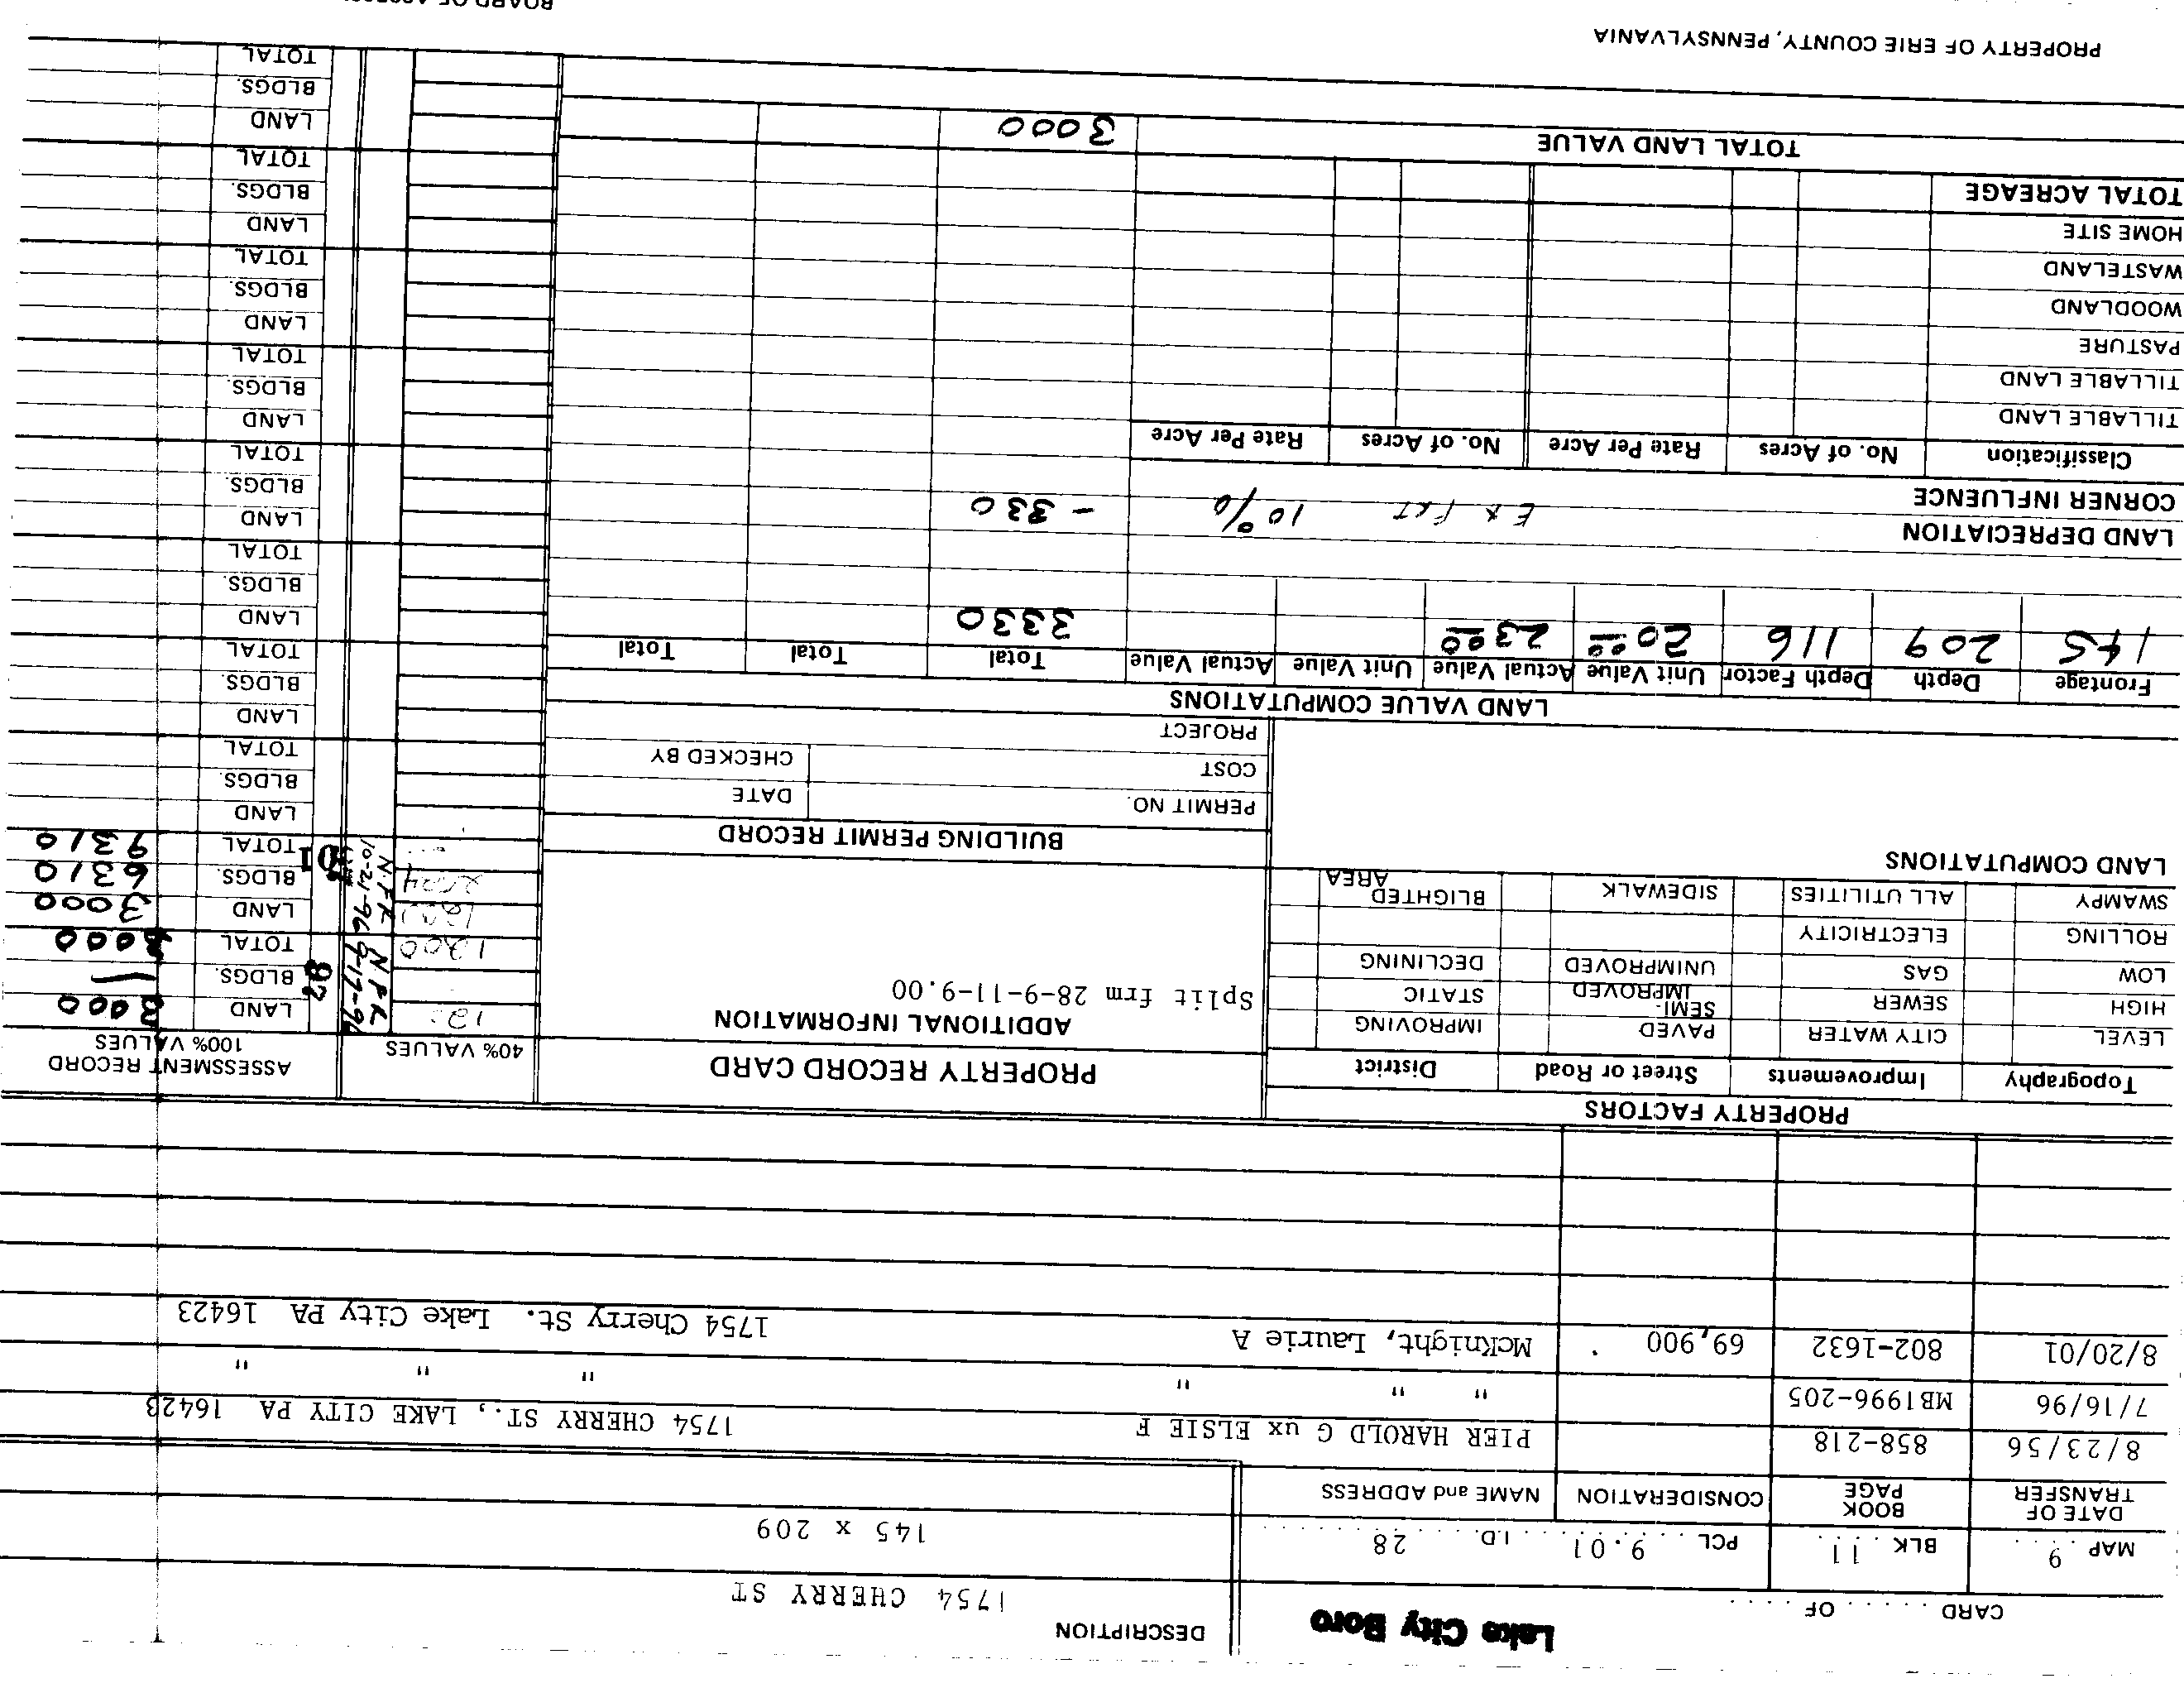 CARD ..... OF .....
Lake City Boro
DESCRIPTION
1754 CHERRY ST
MAP 9 BLK. 11 PCL. 9.01 I.D. 28
145 x 209
DATE OF TRANSFER BOOK PAGE CONSIDERATION NAME and ADDRESS
8/23/56 858-218 PIER HAROLD G ux ELSIE F 1754 CHERRY ST., LAKE CITY PA 16423
7/16/96 MB1996-205 " " " " " "
8/20/01 802-1632 69,900 McKnight, Laurie A 1754 Cherry St. Lake City PA 16423
PROPERTY FACTORS
Topography Improvements Street or Road District
LEVEL CITY WATER PAVED IMPROVING
HIGH SEWER SEMI-IMPROVED STATIC
LOW GAS UNIMPROVED DECLINING
ROLLING ELECTRICITY
SWAMPY ALL UTILITIES SIDEWALK BLIGHTED AREA
LAND COMPUTATIONS
PROPERTY RECORD CARD
ADDITIONAL INFORMATION
Split frm 28-9-11-9.00
BUILDING PERMIT RECORD
PERMIT NO. DATE
COST CHECKED BY
PROJECT
40% VALUES
1200
ASSESSMENT RECORD
100% VALUES
N.P.R.
10-21-96
LAND 3000
BLDGS. —
TOTAL 3000
01
LAND 3000
BLDGS. 6310
TOTAL 9310
LAND
BLDGS.
TOTAL
LAND
BLDGS.
TOTAL
LAND
BLDGS.
TOTAL
LAND
BLDGS.
TOTAL
LAND
BLDGS.
TOTAL
LAND
BLDGS.
TOTAL
LAND
BLDGS.
TOTAL
LAND
BLDGS.
TOTAL
LAND VALUE COMPUTATIONS
Frontage Depth Depth Factor Unit Value Actual Value Unit Value Actual Value Total Total Total
145 209 116 20 00 23 00 3330
LAND DEPRECIATION
CORNER INFLUENCE Ex Frt 10% - 330
Classification No. of Acres Rate Per Acre No. of Acres Rate Per Acre
TILLABLE LAND
TILLABLE LAND
PASTURE
WOODLAND
WASTELAND
HOME SITE
TOTAL ACREAGE
TOTAL LAND VALUE 3000
PROPERTY OF ERIE COUNTY, PENNSYLVANIA
BOARD OF